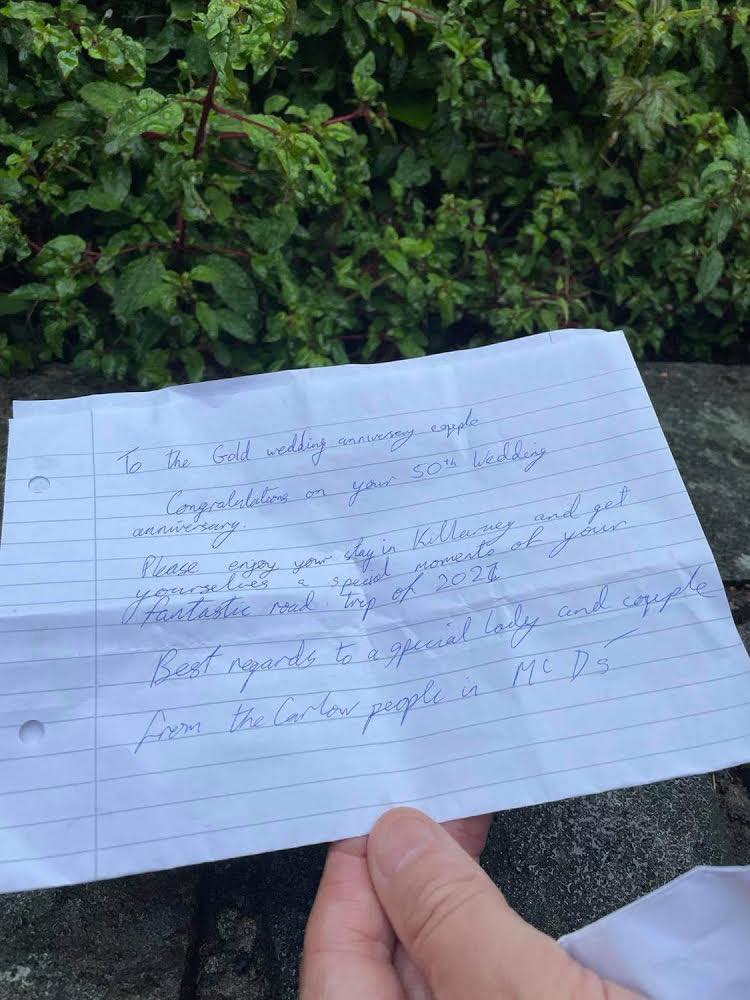 To the Gold wedding anniversery couple
Congratulations on your 50th Wedding
anniversary.
Please enjoy your stay in Killarney and get
yourselves a special momento of your
fantastic road trip of 2021
Best regards to a special lady and couple
from the Carlow people in Mc Ds